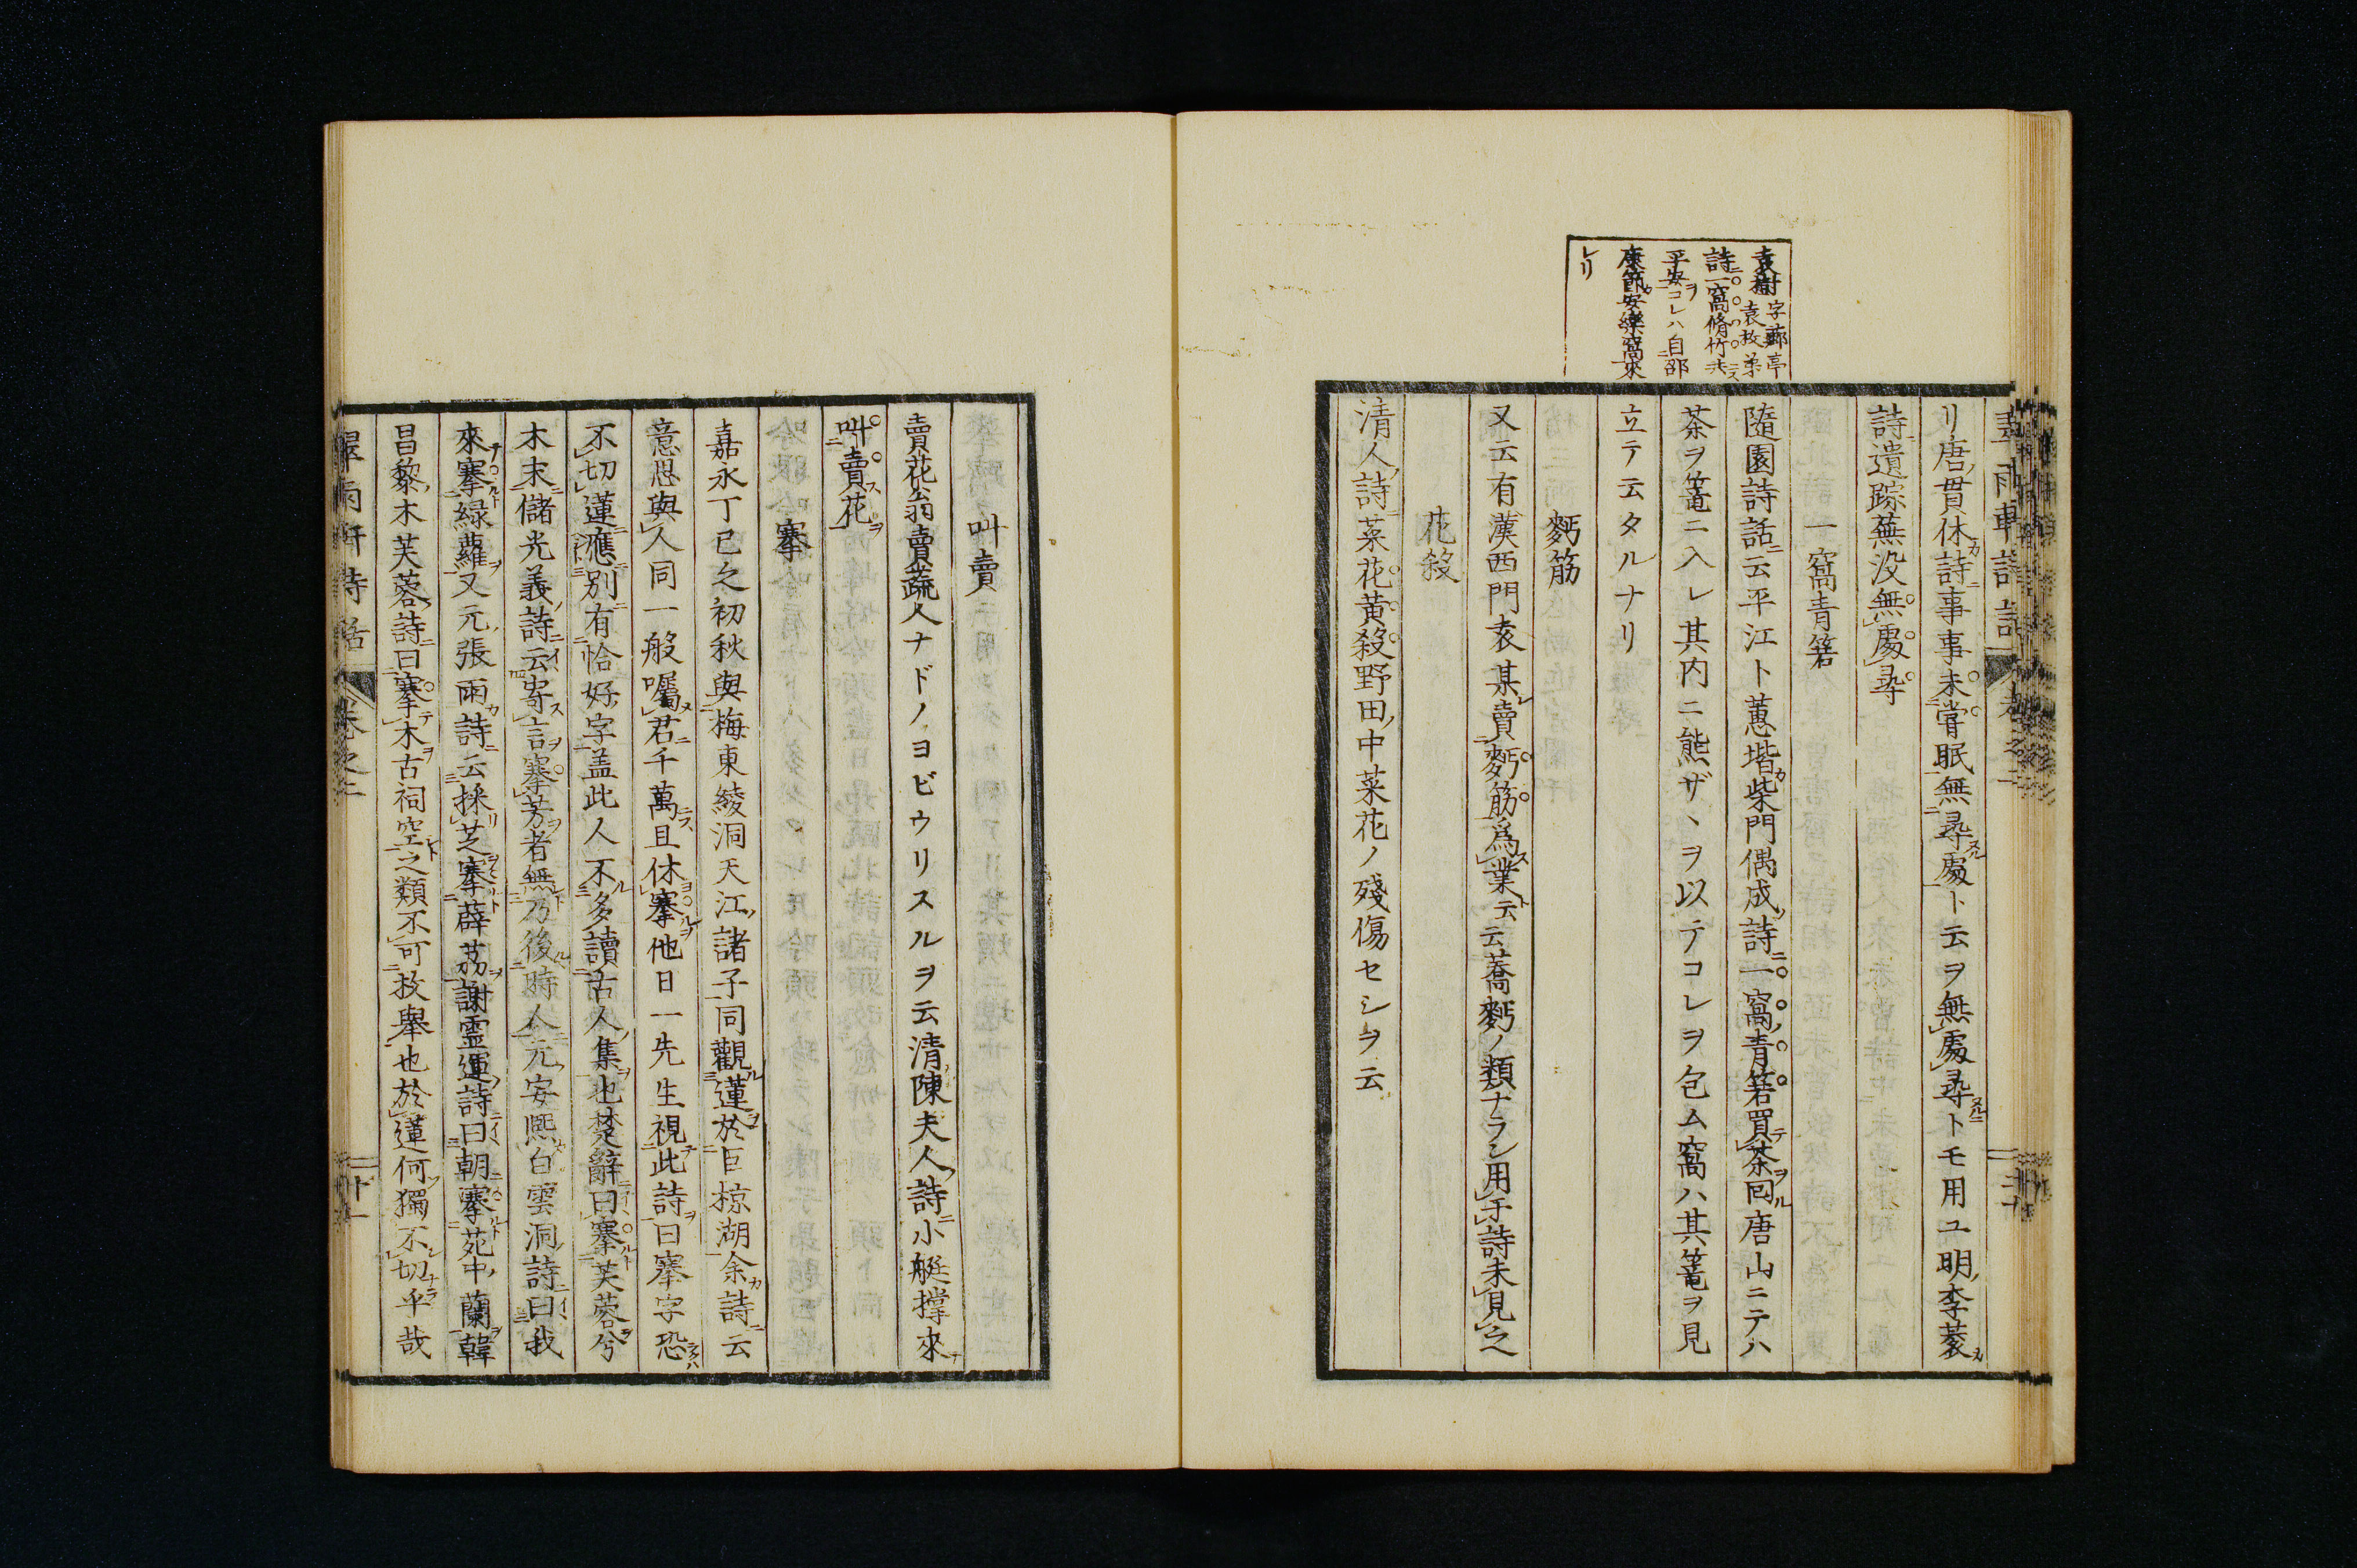 袁樹 字薌亭 袁枚弟
詩一窩脩竹共
平安コレハ自邵
康節安樂窩來
レリ
リ唐貫休詩事事未甞眠無尋處ト云ヲ無處尋トモ用ユ明李蓘
詩遺踪蕪没無處尋
一窩青箬
隨園詩話云平江ト蕙堦柴門偶成詩一窩青箬買茶回唐山ニテハ
茶ヲ篭ニ入レ其内ニ熊ザヽヲ以テコレヲ包ム窩ハ其篭ヲ見
立テ云タルナリ
麪筋
又云有漢西門袁某賣麪筋爲業云云蕎麪ノ類ナラン用于詩未見之
花殺
清人詩菜花黄殺野田中菜花ノ殘傷セシヲ云
叫賣
賣花翁賣蔬人ナドノヨビウリスルヲ云清陳夫人詩小艇撑來
叫賣花
搴
嘉永丁巳之初秋與梅東綾洞天江諸子同觀蓮於巨椋湖余詩云
意思與人同一般囑君千萬且休搴他日一先生視此詩曰搴字恐
不切蓮應別有恰好字盖此人不多讀古人集也楚辭曰搴芙蓉兮
木末儲光義詩云寄言搴芳者無乃後時人元安熙白雲洞詩曰我
來搴緑蘿又元張雨詩云採芝搴薜茘謝霊運詩曰朝搴苑中蘭韓
昌黎木芙蓉詩曰搴木古祠空之類不可枚舉也於蓮何獨不切乎哉
翠雨軒詩話 卷之二 二十一